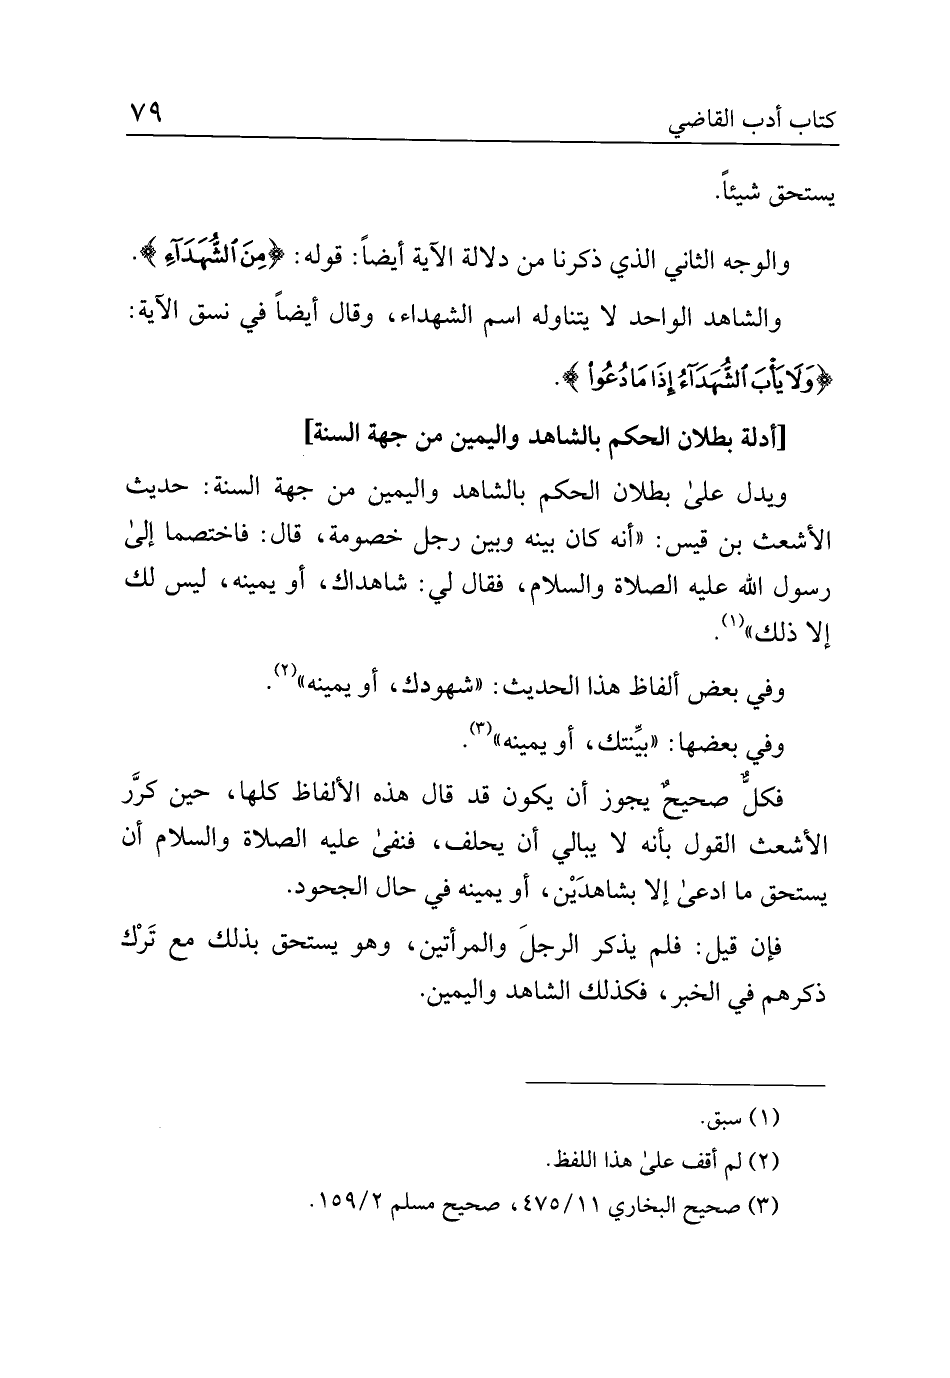 كتاب أدب القاضي ٧٩
يستحق شيئاً.
والوجه الثاني الذي ذكرنا من دلالة الآية أيضاً: قوله: ﴿مِنَ ٱلشُّهَدَآءِ﴾.
والشاهد الواحد لا يتناوله اسم الشهداء، وقال أيضاً في نسق الآية:
﴿وَلَا يَأْبَ ٱلشُّهَدَآءُ إِذَا مَا دُعُوا۟﴾.
[أدلة بطلان الحكم بالشاهد واليمين من جهة السنة]
ويدل علىٰ بطلان الحكم بالشاهد واليمين من جهة السنة: حديث
الأشعث بن قيس: «أنه كان بينه وبين رجل خصومة، قال: فاختصما إلىٰ
رسول الله عليه الصلاة والسلام، فقال لي: شاهداك، أو يمينه، ليس لك
إلا ذلك»(١).
وفي بعض ألفاظ هذا الحديث: «شهودك، أو يمينه»(٢).
وفي بعضها: «بيِّنتك، أو يمينه»(٣).
فكلٌّ صحيحٌ يجوز أن يكون قد قال هذه الألفاظ كلها، حين كرَّر
الأشعث القول بأنه لا يبالي أن يحلف، فنفىٰ عليه الصلاة والسلام أن
يستحق ما ادعىٰ إلا بشاهدَيْن، أو يمينه في حال الجحود.
فإن قيل: فلم يذكر الرجلَ والمرأتين، وهو يستحق بذلك مع تَرْك
ذكرهم في الخبر، فكذلك الشاهد واليمين.
(١) سبق.
(٢) لم أقف علىٰ هذا اللفظ.
(٣) صحيح البخاري ٤٧٥/١١، صحيح مسلم ١٥٩/٢.